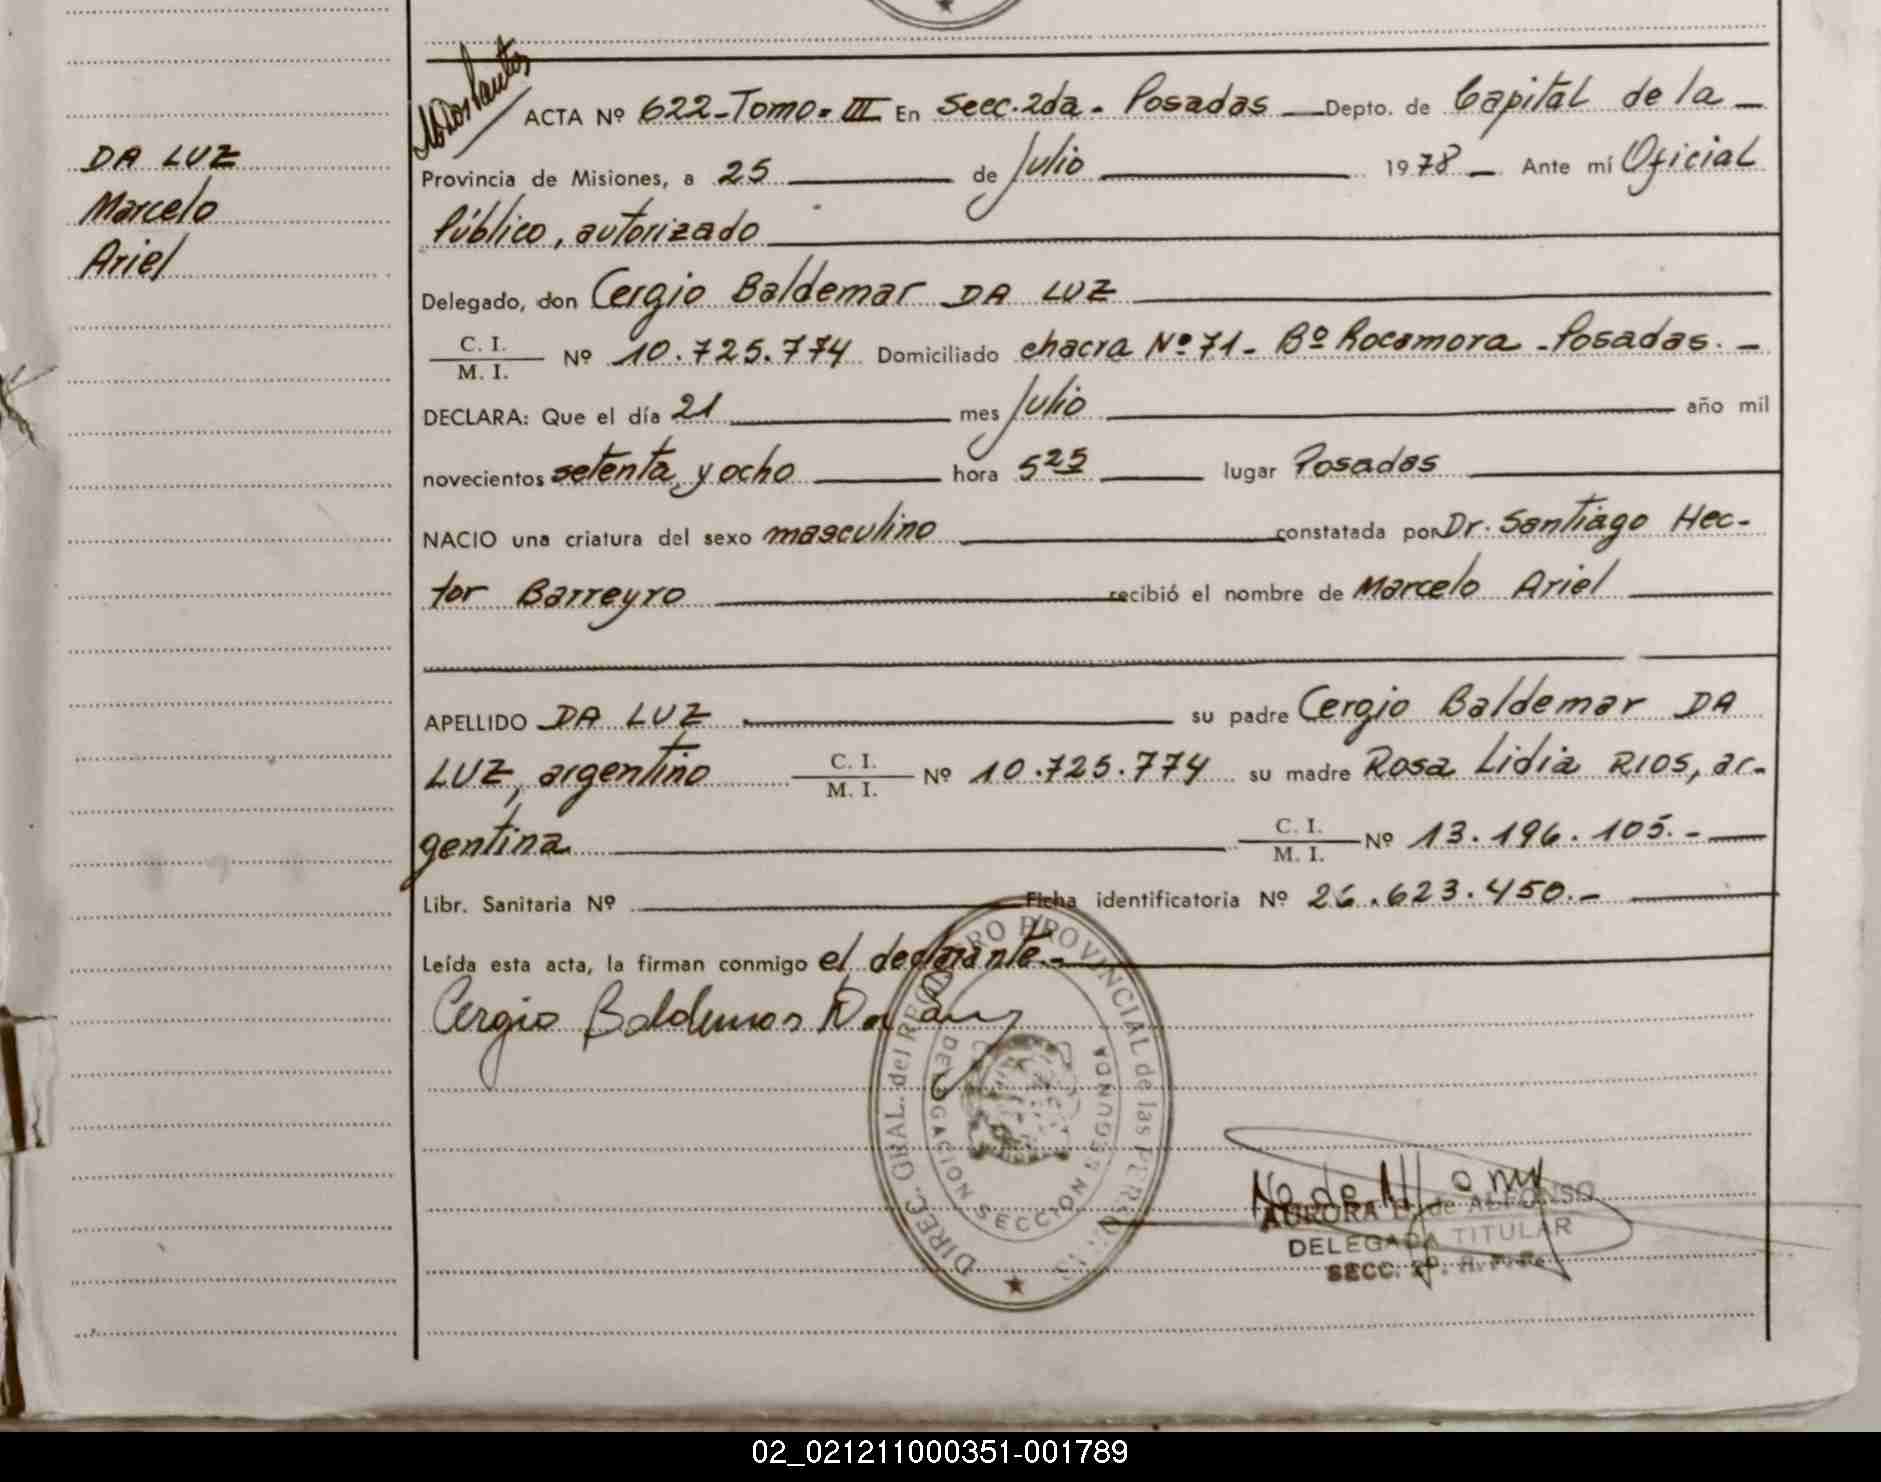 DA LUZ
Marcelo
Ariel
ACTA Nº 622-Tomo-III En Secc.2da- Posadas Depto. de Capital de la
Provincia de Misiones, a 25 de Julio 1978 Ante mí Oficial
Público, autorizado
Delegado, don Cergio Baldemar DA LUZ
C. I.
M. I. Nº 10.725.774 Domiciliado chacra Nº 71- Bº Rocamora - Posadas.-
DECLARA: Que el día 21 mes Julio año mil
novecientos setenta y ocho hora 5 25 lugar Posadas
NACIO una criatura del sexo masculino constatada por Dr. Santiago Hec-
tor Barreyro recibió el nombre de Marcelo Ariel
APELLIDO DA LUZ su padre Cergio Baldemar DA
LUZ, argentino C. I. M. I. Nº 10.725.774 su madre Rosa Lidia RIOS, ar-
gentina C. I. M. I. Nº 13.196.105.-
Libr. Sanitaria Nº Ficha identificatoria Nº 26.623.450.-
Leída esta acta, la firman conmigo el declarante.-
Cergio Baldemar Da Luz
DIREC. GRAL. del REGISTRO PROVINCIAL de las PERSONAS
DELEGACION SECCION SEGUNDA
AURORA de ALFONSO
DELEGADA TITULAR
SECC. 2ª.
02_021211000351-001789